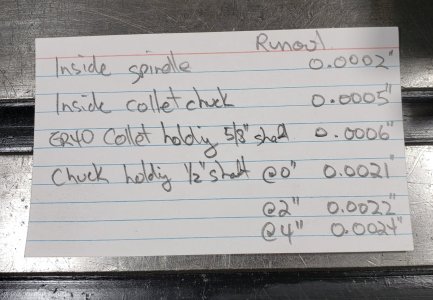 Runout
Inside spindle 0.0002"
Inside collet chuck 0.0005"
ER40 Collet holdig 5/8" shaft 0.0006"
Chuck holdig 1/2" shaft @0" 0.0021"
@2" 0.0022"
@4" 0.0024"